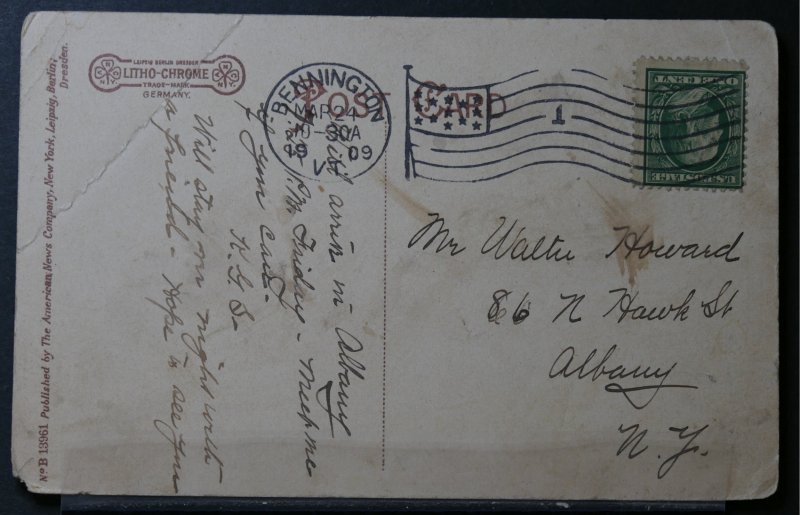 LEIPZIG BERLIN DRESDEN
LITHO-CHROME
TRADE-MARK
GERMANY.
POST CARD
BENNINGTON
MAR 24
30A
1909
VT
1
U.S. POSTAGE
ONE CENT
Mr Walter Howard
86 N Hawk St
Albany
N.Y.
arrive in Albany
P.M. Friday - Meet me
if you can -
Will stay one night with
a friend - Hope to see you
No B 13961 Published by The American News Company, New York, Leipzig, Berlin,
Dresden.